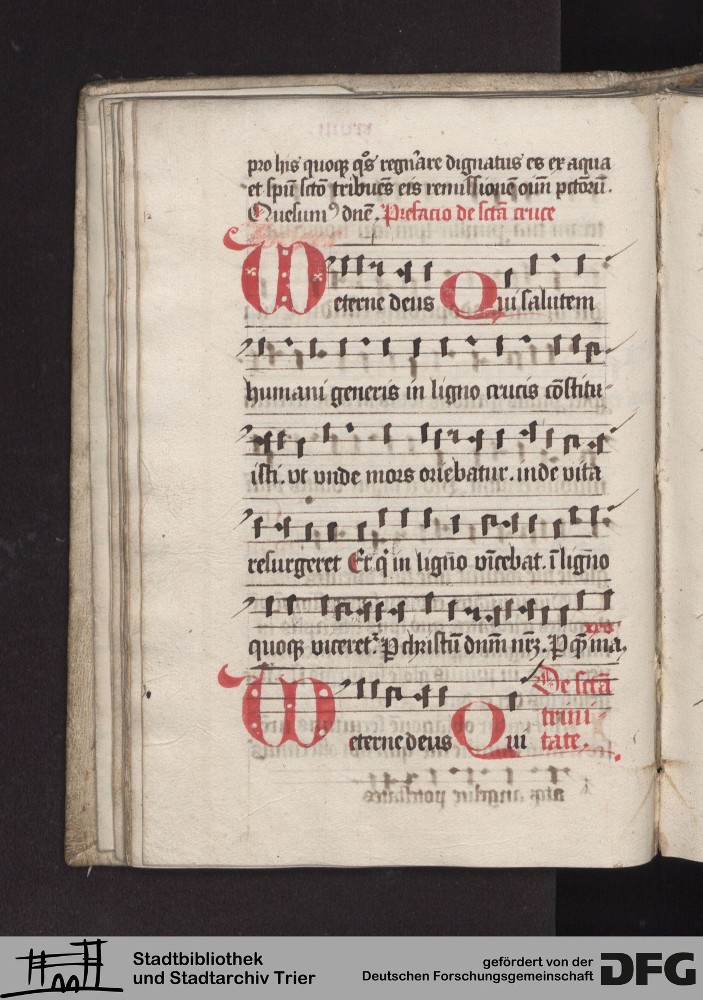 pro his quoqꝫ qͦs regn̄are dignatus es ex aqua
et spū sctō tribuēs eis remissionē oīm pctōrū.
Quesumꝰ dn̄e. Prefacio de sctā cruce
W eterne deus Qui salutem
humani generis in ligno crucis cōstitu-
isti. vt vnde mors oriebatur. inde vita
resurgeret Et q̇ in ligno vīcebat. ī ligno
quoqꝫ vinceret. Ꝑ christū dn̄m nr̄ꝫ. Ꝑ quē ma.
W eterne deus Qui
De sctā
trini-
tate.
Stadtbibliothek
und Stadtarchiv Trier
gefördert von der
Deutschen Forschungsgemeinschaft
DFG